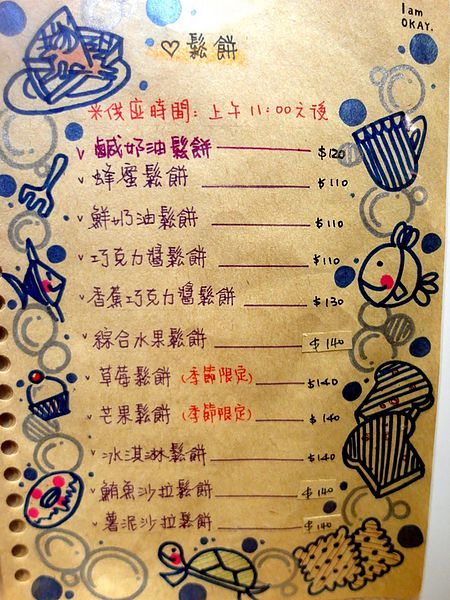 I am
OKAY.
♡鬆餅
※供应時間：上午11:00之後
v 鹹奶油鬆餅 $120
v 蜂蜜鬆餅 $110
v 鮮奶油鬆餅 $110
v 巧克力醬鬆餅 $110
v 香蕉巧克力醬鬆餅 $130
v 綜合水果鬆餅 $140
v 草莓鬆餅 (季節限定) $140
v 芒果鬆餅 (季節限定) $140
v 冰淇淋鬆餅 $140
v 鮪魚沙拉鬆餅 $140
v 薯泥沙拉鬆餅 $140